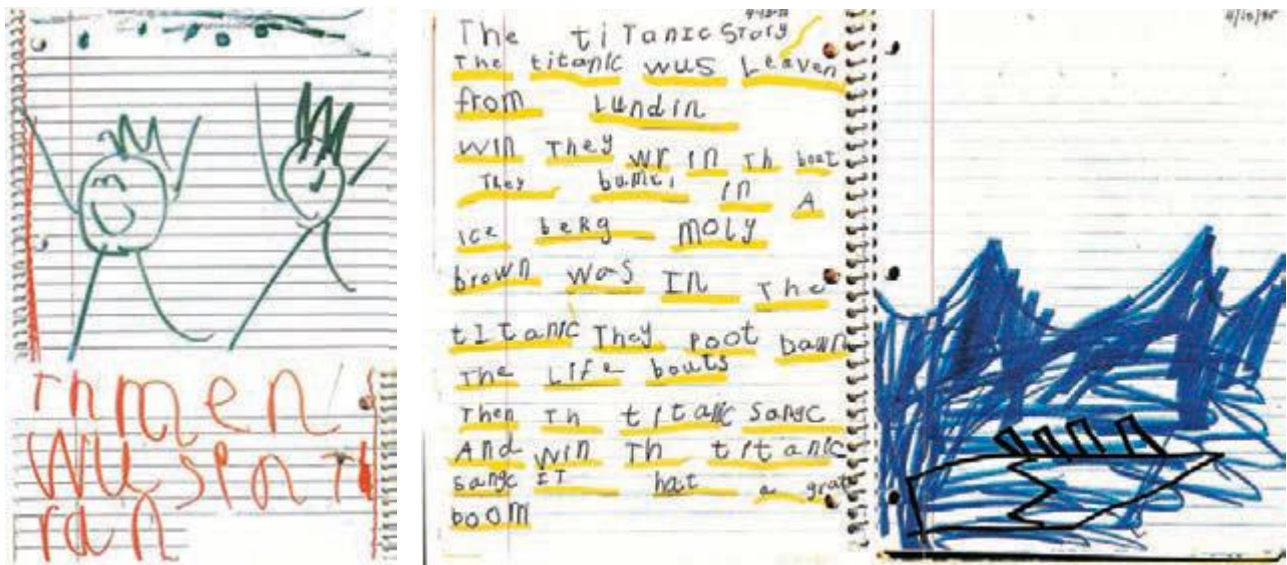 Th men
wus s in Th
ran
The tiTanic Story
The titanic wus Leaven
from Lundin
win They wr in Th boat
They in A
ice beRg moly
brown was In The
tItanic They poot dawn
The LiFe bouts
Then Th titanic Sangc
And win Th titanic
sangc IT hat a grat
boom